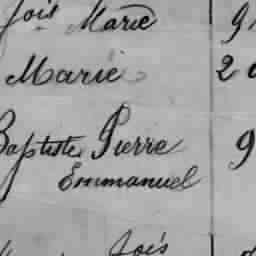 fois Marie 9
Marie 2
Baptiste Pierre 9
Emmanuel
fois